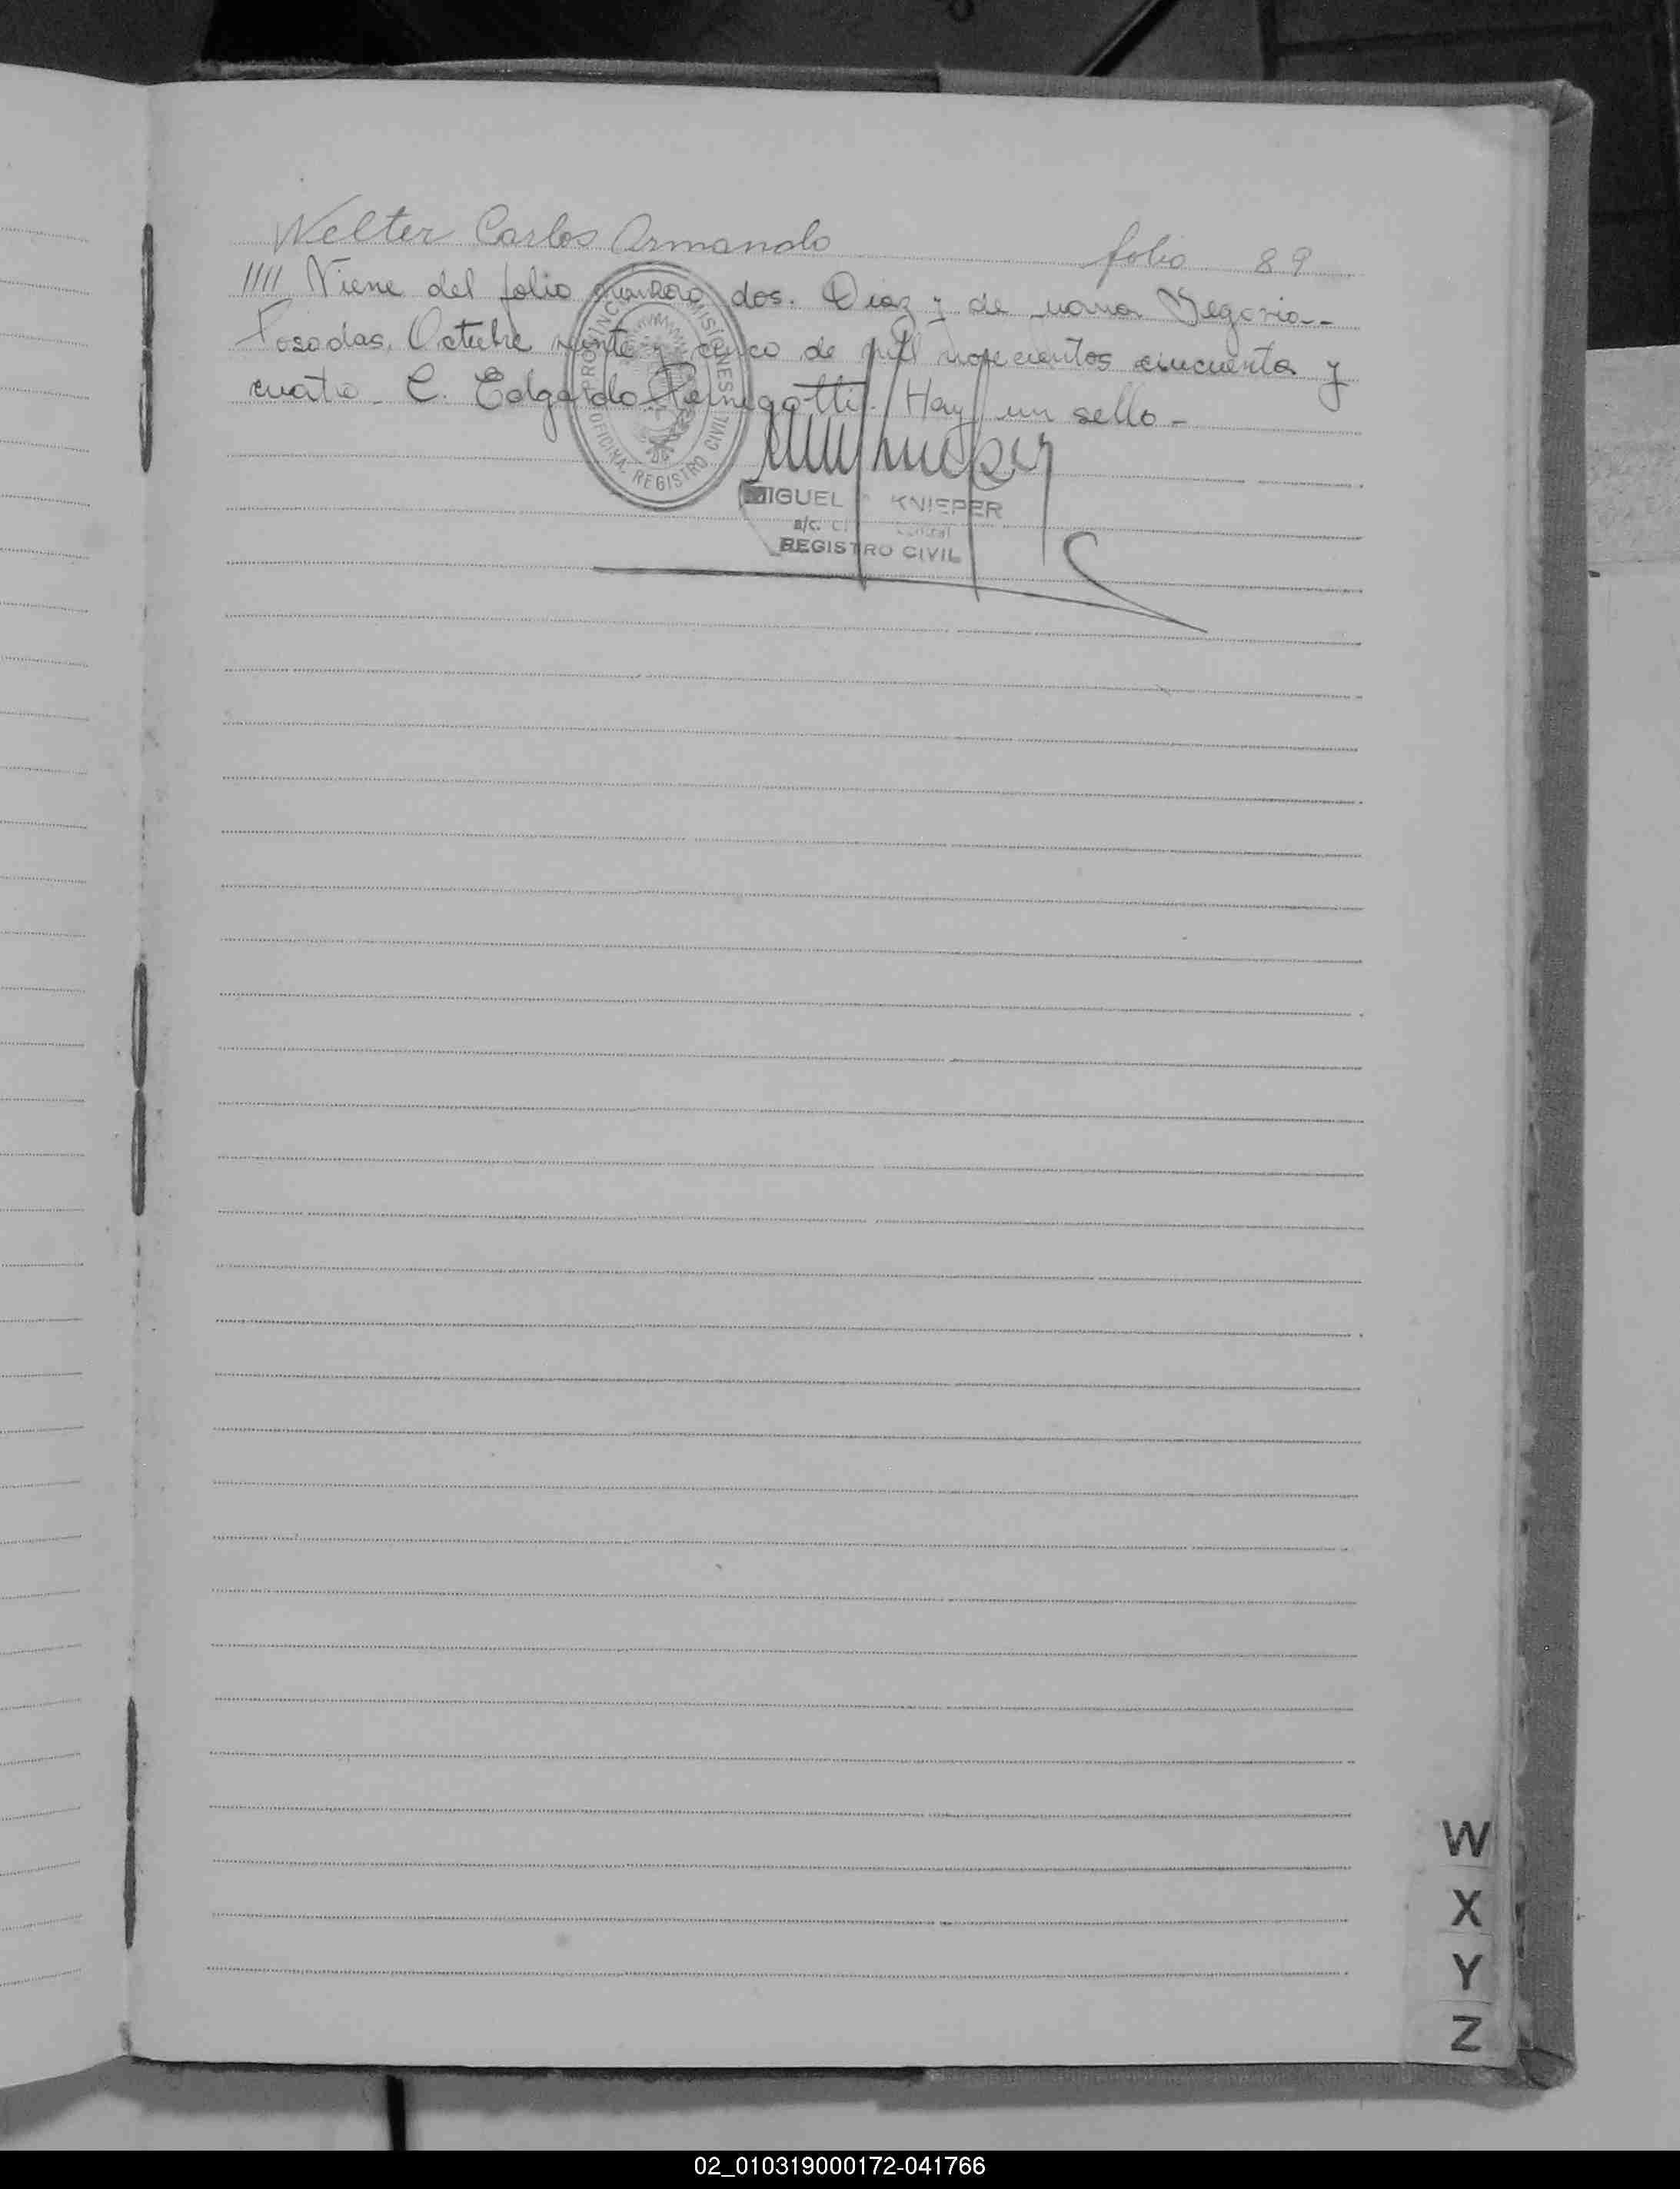 Welter Carlos Armando folio 89
//// Viene del folio número dos. Diaz y de nona Segovia--
Posadas, Octubre veinte y cinco de mil novecientos cincuenta y
cuatro - C. Edgardo Hay un sello -
PROVINCIA MISIONES
OFICINA REGISTRO CIVIL
MIGUEL KNIEPER
a/c. Central
REGISTRO CIVIL
W
X
Y
Z
02_010319000172-041766